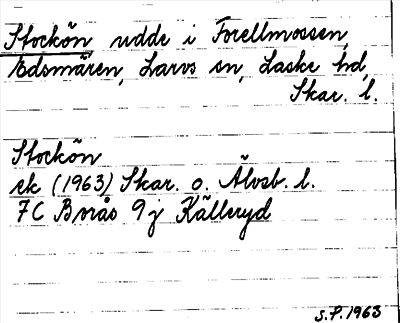 Stockön udde i Forellmossen,
Edsmären, Larvs sn, Laske hd,
Skar. l.
Stockön
ek (1963) Skar. o. Älvsb. l.
7C Borås 9j Källeryd
S.P. 1963